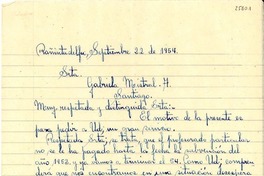 Rañintulelfu, Septiembre 22 de 1954.
Srta.
Gabriela Mistral. G.
Santiago.
Muy respetada y distinguida Srta:
El motivo de la presente es
para pedir a Ud. un gran
Respetada Srta; que el profesorado particular
no se le ha pagado hasta la fecha la subvención del
año 1952, y ya vamos a terminar el 54. Como Ud; compren
derá que nos encontramos en una situación desespera